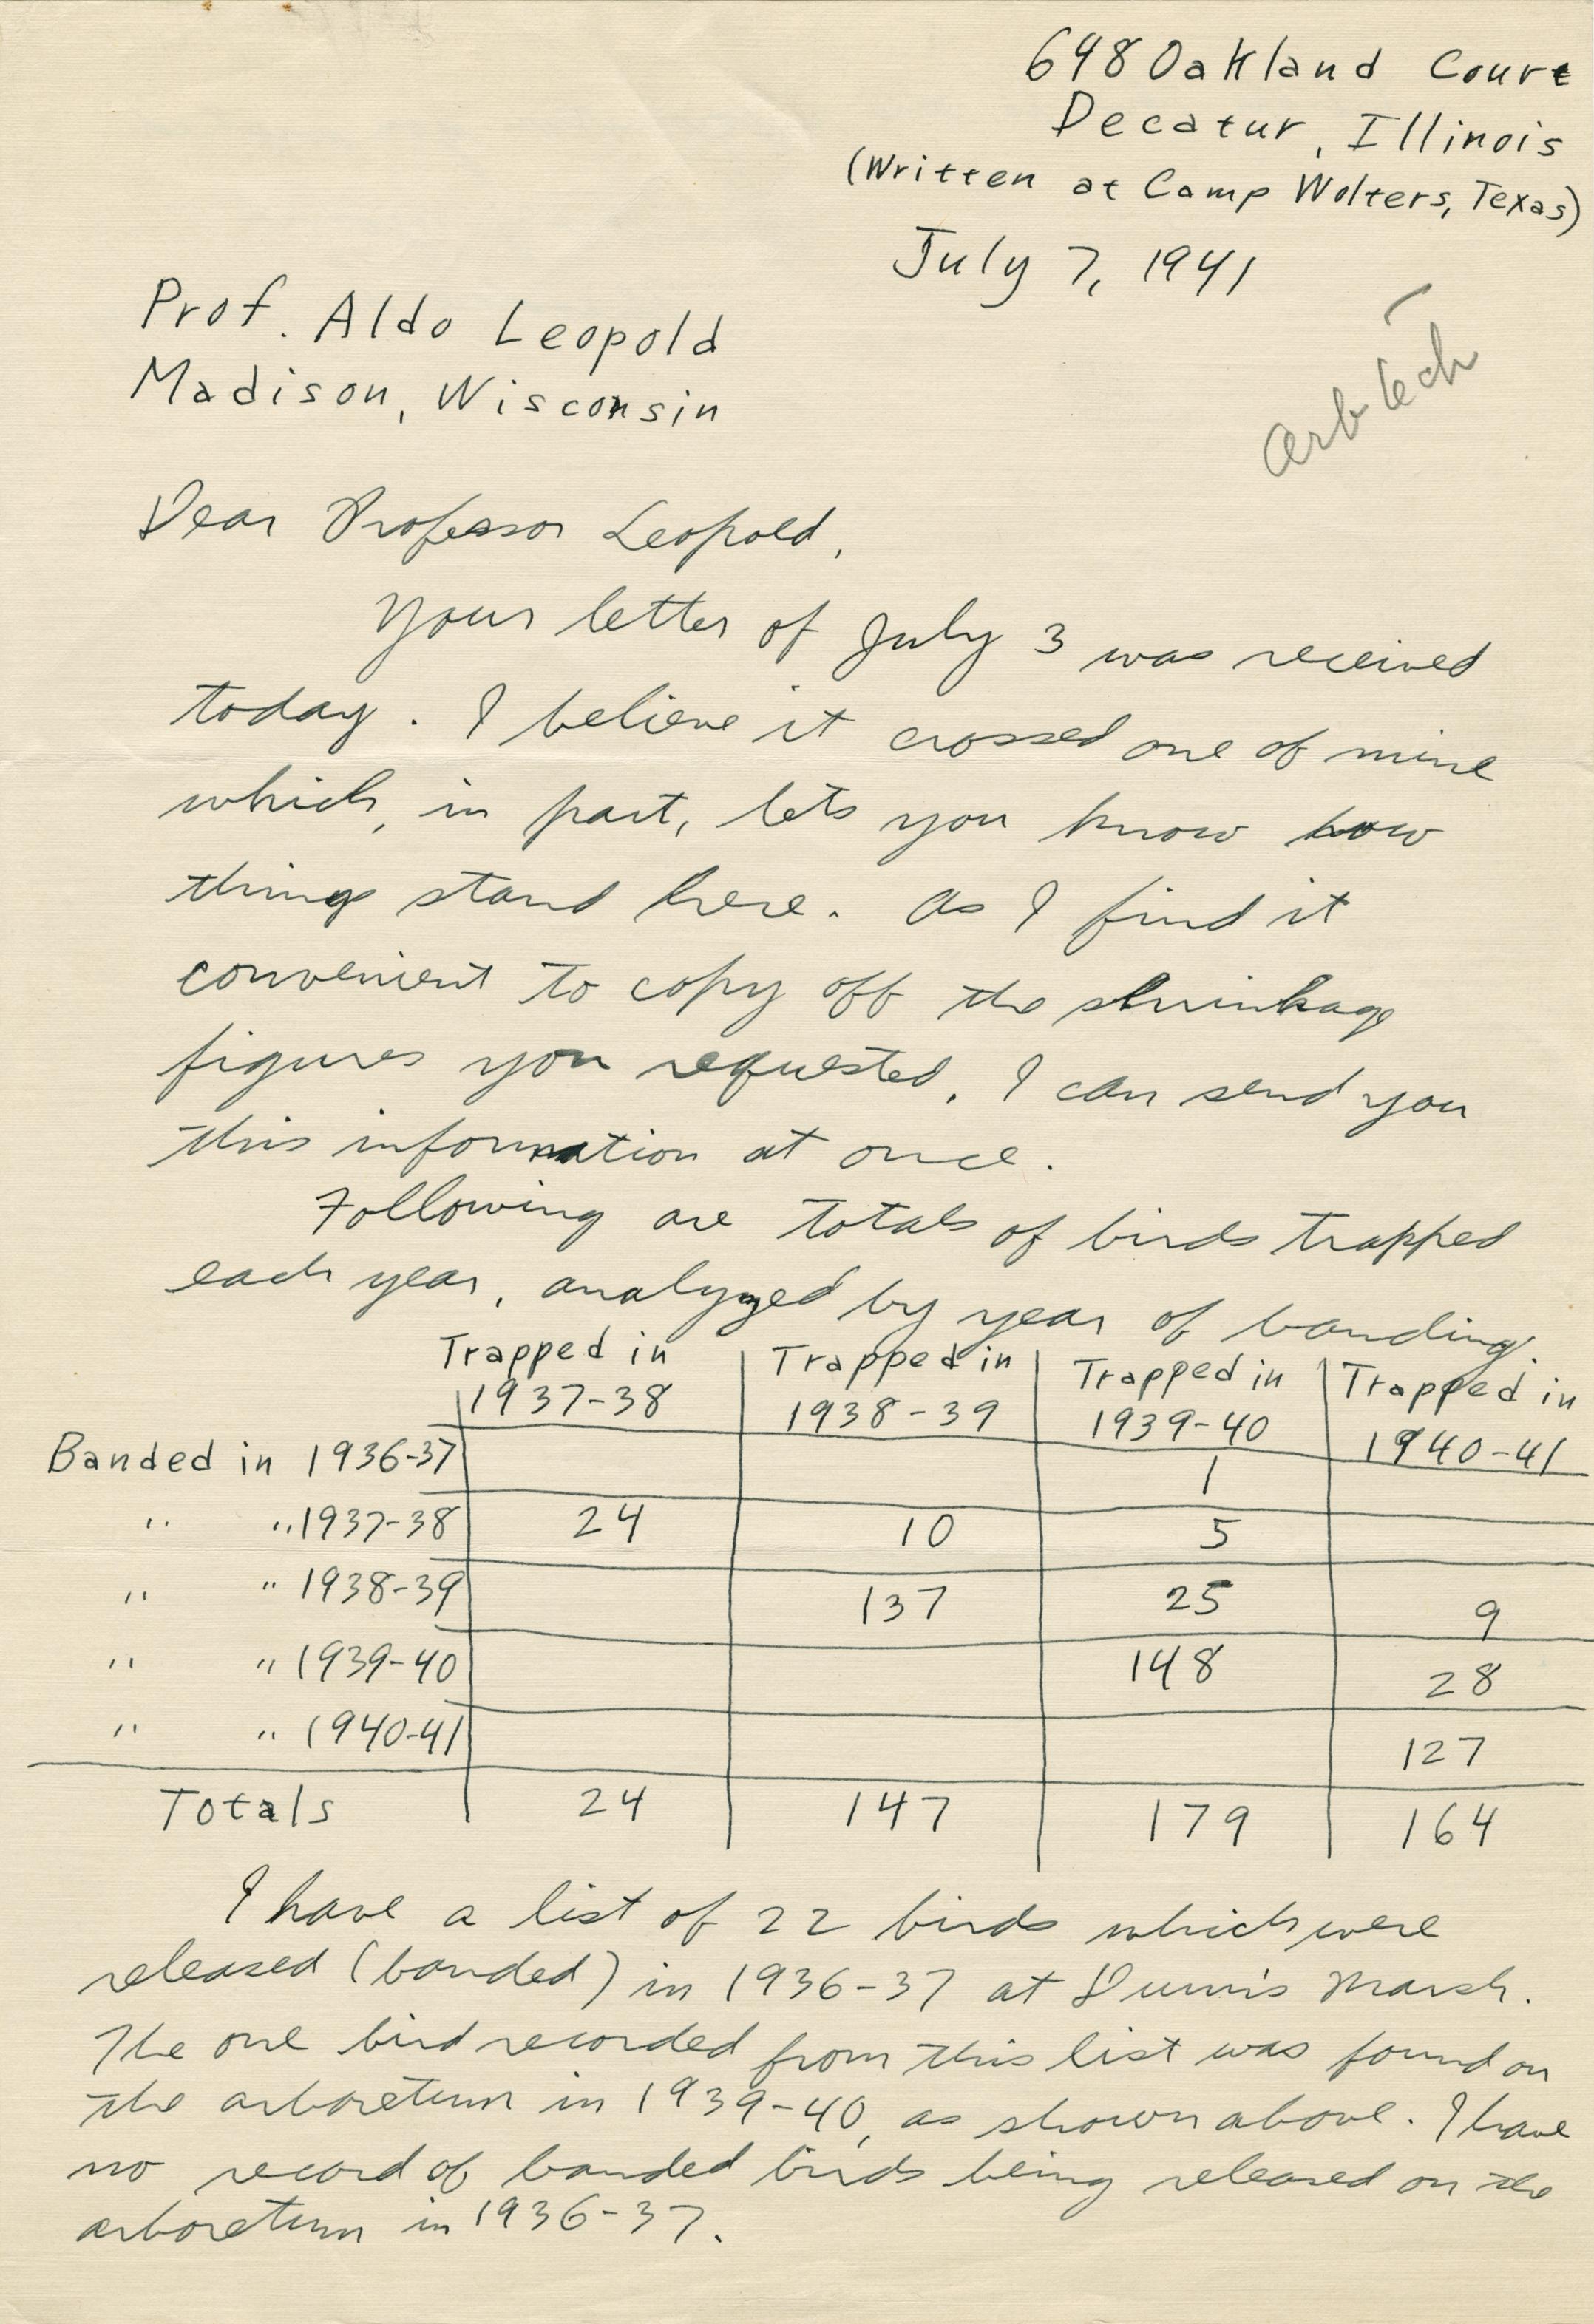 698 Oakland Court
Decatur, Illinois
(Written at Camp Wolters, Texas)
July 7, 1941
Prof. Aldo Leopold
Madison, Wisconsin
Arb tech
Dear Professor Leopold,
Your letter of July 3 was received
today. I believe it crossed one of mine
which, in part, lets you know how
things stand here. As I find it
convenient to copy off the shrinkage
figures you requested, I can send you
this information at once.
Following are totals of birds trapped
each year, analyzed by year of banding.
Trapped in 1937-38 Trapped in 1938-39 Trapped in 1939-40 Trapped in 1940-41
Banded in 1936-37 1
" " 1937-38 24 10 5
" " 1938-39 137 25 9
" " 1939-40 148 28
" " 1940-41 127
Totals 24 147 179 164
I have a list of 22 birds which were
released (banded) in 1936-37 at Dunn's Marsh.
The one bird recorded from this list was found on
the arboretum in 1939-40, as shown above. I have
no record of banded birds being released on the
arboretum in 1936-37.